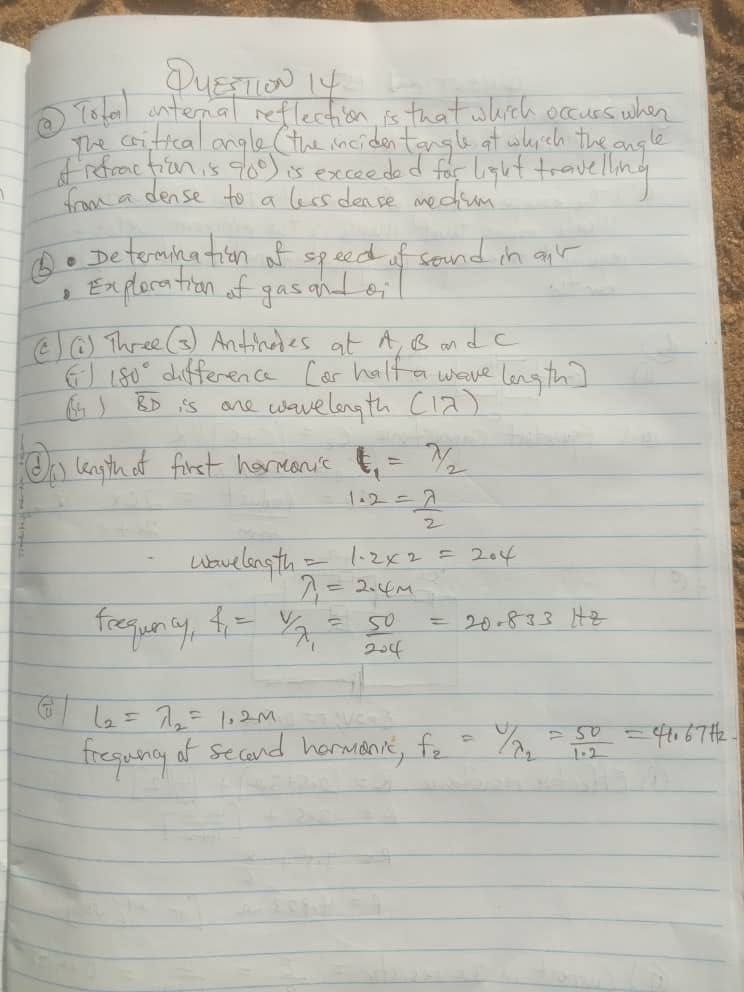 QUESTION 14
(a) Total internal reflection is that which occurs when
the critical angle (the incident angle at which the angle
of refraction is 90°) is exceeded for light travelling
from a dense to a less dense medium
(b) • Determination of speed of sound in air
• Exploration of gas and oil
c) (i) Three (3) Antinodes at A, B and C
(ii) 180° difference [or half a wavelength]
(iii) BD is one wavelength (1λ)
(d) (i) length of first harmonic ℓ₁ = λ/2
1.2 = λ/2
wavelength = 1.2 x 2 = 2.4
λ₁ = 2.4m
frequency, f₁ = V/λ₁ = 50/2.4 = 20.833 Hz
(ii) l₂ = λ₂ = 1.2m
frequency of second harmonic, f₂ = V/λ₂ = 50/1.2 = 41.67Hz